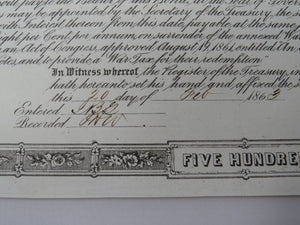 will pay to the Bearer
may be appointed by the Secretary of the Treasury,
with Interest thereon from this date, payable at the same
Eight per Cent per annum, on surrender of the annexed War
an Act of Congress, approved August 19, 1861, entitled An
Notes, and to provide a War Tax for their redemption"
In Witness whereof, the Register of the Treasury,
hath hereunto set his hand and affixed the
this 20 day of Feb 1863
Entered
Recorded
FIVE HUNDRE